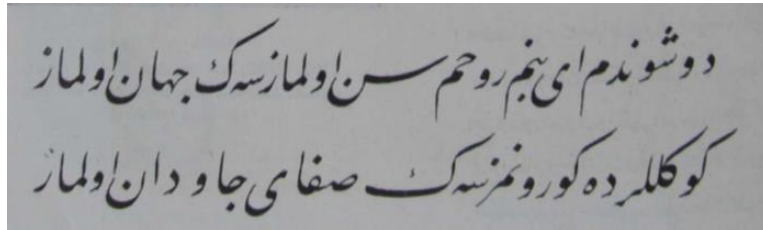 دوشوندم ای بنم روحم سن اولمازسه ك جهان اولماز
كوكللرده كورونمزسه ك صفای جاودان اولماز